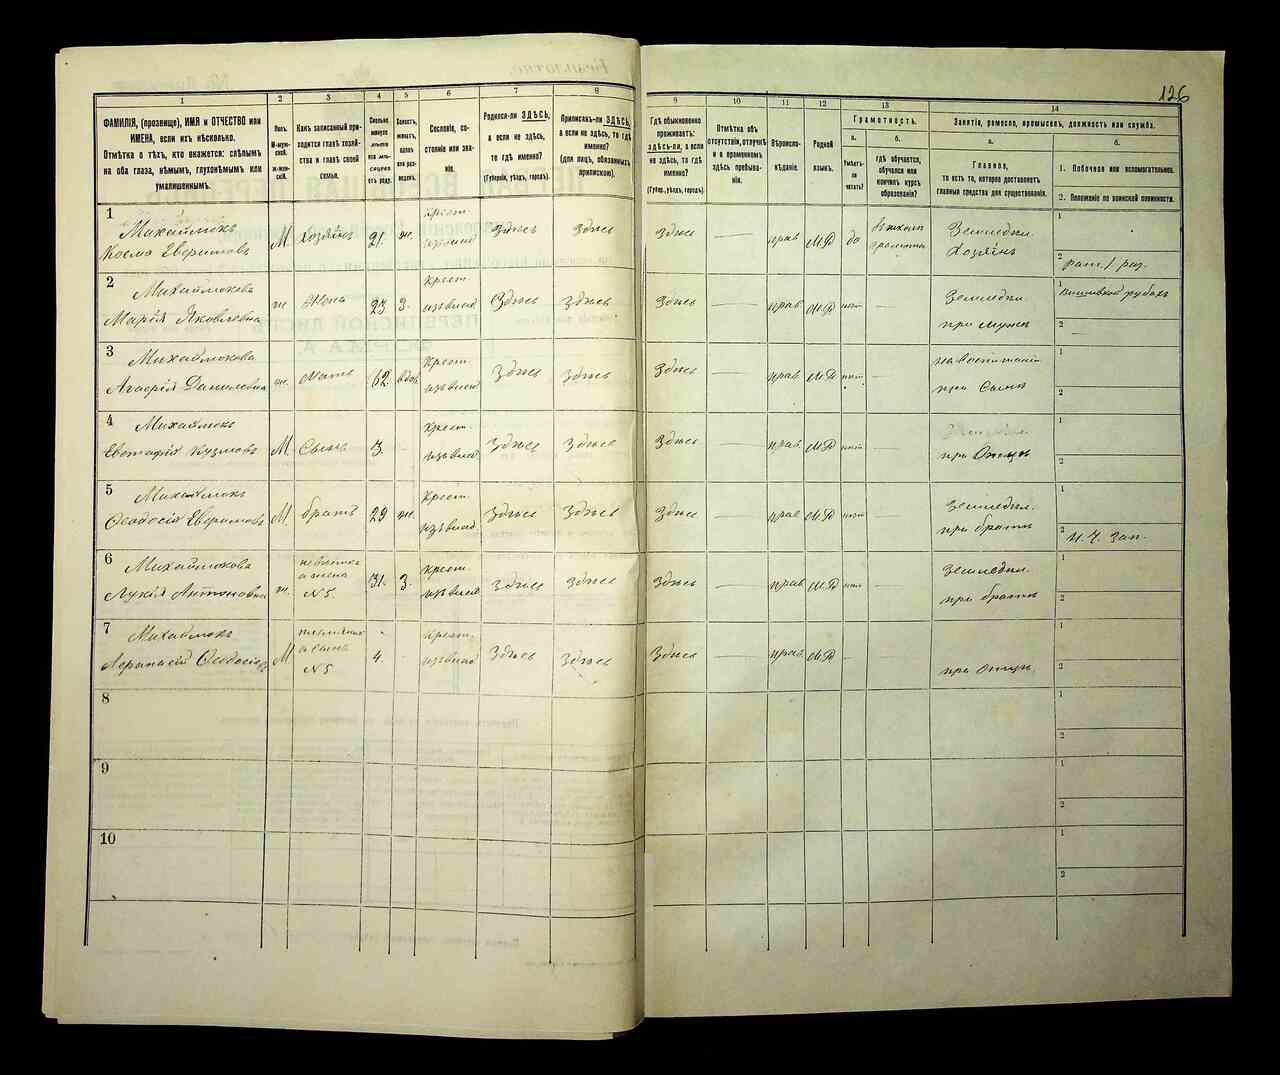 126
1
2
3
4
5
6
7
8
9
10
11
12
13
14
ФАМИЛІЯ, (прозвище), ИМЯ и ОТЧЕСТВО или
ИМЕНА, если ихъ нѣсколько.
Отмѣтка о тѣхъ, кто окажется: слѣпымъ
на оба глаза, нѣмымъ, глухонѣмымъ или
умалишеннымъ.
Полъ.
М-муж-
ской.
Ж-жен-
скій.
Какъ записанный при-
ходится главѣ хозяй-
ства и главѣ своей
семьи.
Сколько
минуло
лѣтъ
или мѣ-
сяцевъ
отъ роду.
Холостъ,
женатъ,
вдовъ
или раз-
веденъ.
Сословіе, со-
стояніе или зва-
ніе.
Родился-ли ЗДѢСЬ,
а если не здѣсь,
то гдѣ именно?
(Губернія, уѣздъ, городъ).
Приписанъ-ли ЗДѢСЬ,
а если не здѣсь, то гдѣ
именно?
(для лицъ, обязанныхъ
припискою).
Гдѣ обыкновенно
проживаетъ:
здѣсь-ли, а если
не здѣсь, то гдѣ
именно?
(Губер., уѣздъ, городъ).
Отмѣтка объ
отсутствіи, отлучкѣ
и о временномъ
здѣсь пребыва-
ніи.
Вѣроиспо-
вѣданіе.
Родной
языкъ.
Грамотность.
а.
Умѣетъ-
ли
читать?
б.
гдѣ обучается,
обучался или
кончилъ курсъ
образованія?
Занятіе, ремесло, промыселъ, должность или служба.
а.
Главное,
то есть то, которое доставляетъ
главныя средства для существованія.
б.
1. Побочное или вспомогательное.
2. Положеніе по воинской повинности.
1
Михайлюкъ
Косма
М
Хозяинъ
21.
ж.
Крест.
Здѣсь
Здѣсь
Здѣсь
прав
МР
да
Земледѣл.
Хозяинъ
1
2
2
Михайлюкова
Марія Яковлевна
ж
Жена
23
З.
Крест.
Здѣсь
Здѣсь
Здѣсь
прав
МР
нѣт
Земледѣл.
при мужѣ
1
2
3
Михайлюкова
Агафія Даниловна
ж.
Мать
62.
вдов
Крест.
Здѣсь
Здѣсь
Здѣсь
прав
МР
нѣт
при Сынѣ
1
2
4
Михайлюкъ
Евстафій Кузмовъ
М.
Сынъ
3.
Крест.
Здѣсь
Здѣсь
Здѣсь
прав
МР
нѣт
при Отцѣ
1
2
5
Михайлюкъ
Ѳеодосій
М.
братъ
29
ж.
Крест.
Здѣсь
Здѣсь
Здѣсь
прав
МР
нѣт
Земледѣл.
при братѣ
1
2
6
Михайлюкова
Лукія Антоновна
ж.
невѣстка
а жена
№5.
31.
З.
Крест.
Здѣсь
Здѣсь
Здѣсь
прав
МР
нѣт
Земледѣл.
при братѣ
1
2
7
Михайлюкъ
М
племянникъ
а сынъ
№5
4.
Крест.
Здѣсь
Здѣсь
Здѣсь
прав
МР
при Отцѣ.
1
2
8
1
2
9
1
2
10
1
2